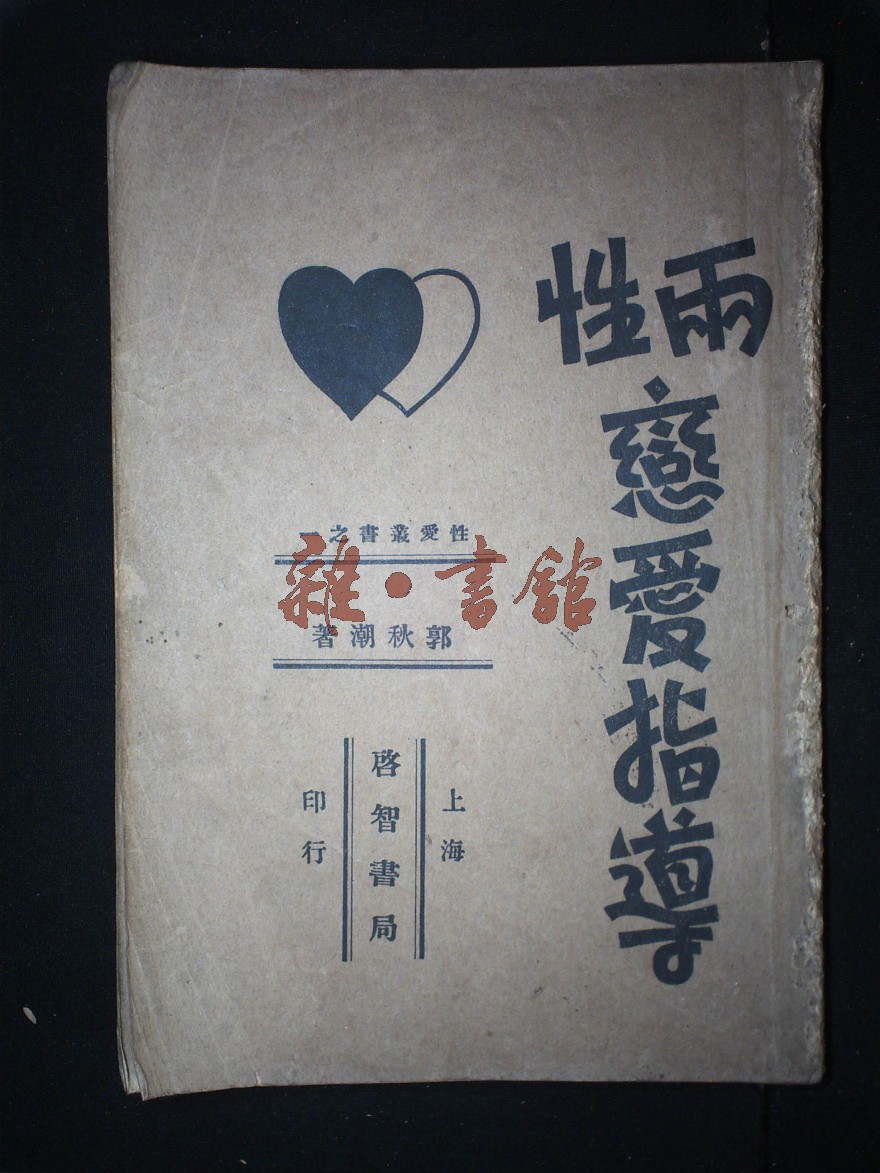 兩性
戀愛指導
性愛叢書之一
郭秋潮著
上海
啓智書局
印行
雜·書館